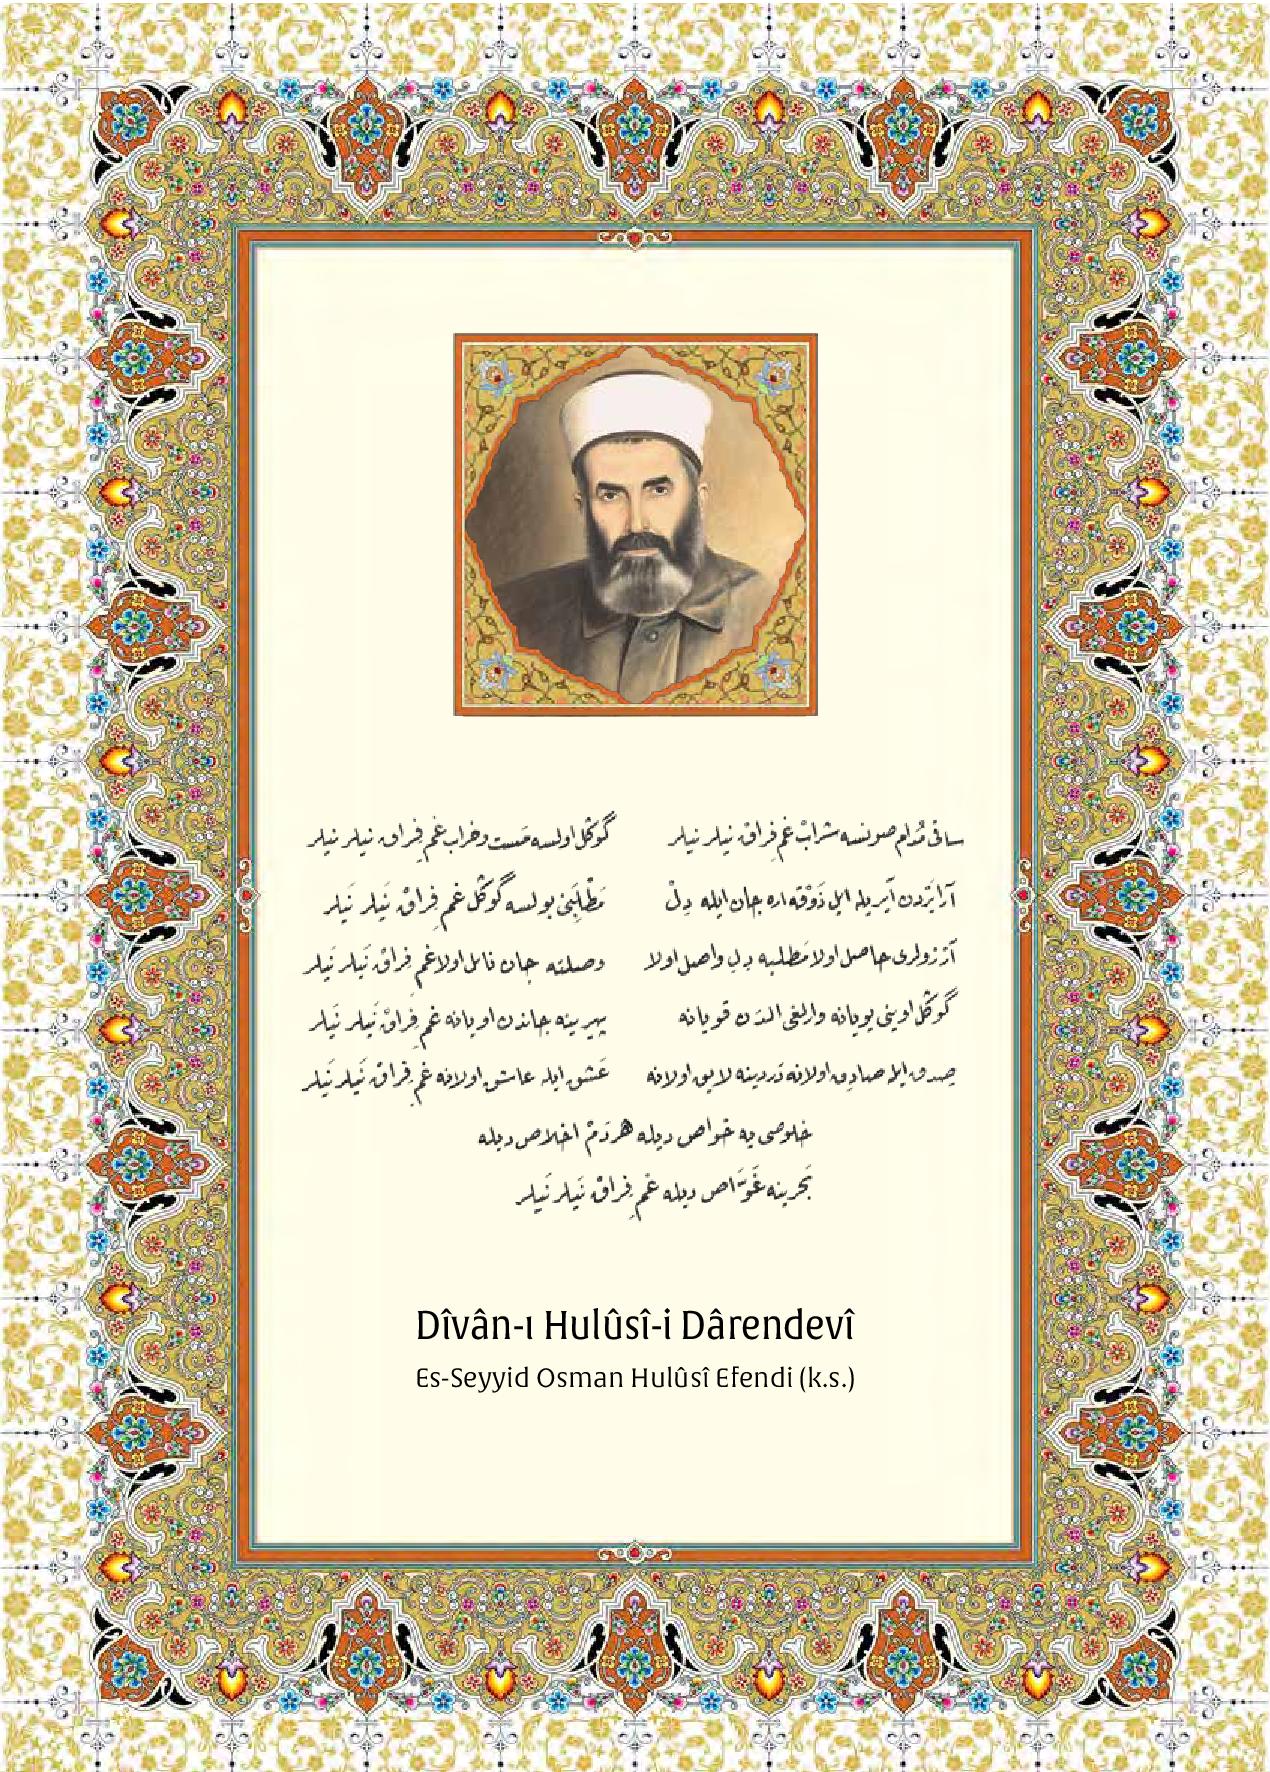 ساقئ مُدام صونسه شرابْ غمِ فِراقْ نيلر نيلر
گوڭل اولسه مَست و خراب غمِ فِراق نيلر نيلر
آرايَردن آيريله ايل ذَوْقه اره جان ايله دِلْ
مَطْلَبِنى بولسه گوڭل غمِ فِراقْ نَيلر نَيلر
آرزولرى حاصل اولا مَطلبه دِل واصل اولا
وصلنه جان نائل اولا غمِ فِراقْ نَيلر نَيلر
گوڭل اوينى بويانه وارلغى الدن قويانه
بهرينه جاندن اويانه غمِ فِراقْ نَيلر نَيلر
صدق ايله صادِق اولانه دَردينه لايق اولانه
عَشق ايله عاشق اولانه غمِ فِراقْ نَيلر نَيلر
خلوصى يه خَواص ديله هر دَمْ اخلاص ديله
بَحرينه غَوّاص ديله غمِ فِراقْ نَيلر نَيلر
Dîvân-ı Hulûsî-i Dârendevî
Es-Seyyid Osman Hulûsî Efendi (k.s.)